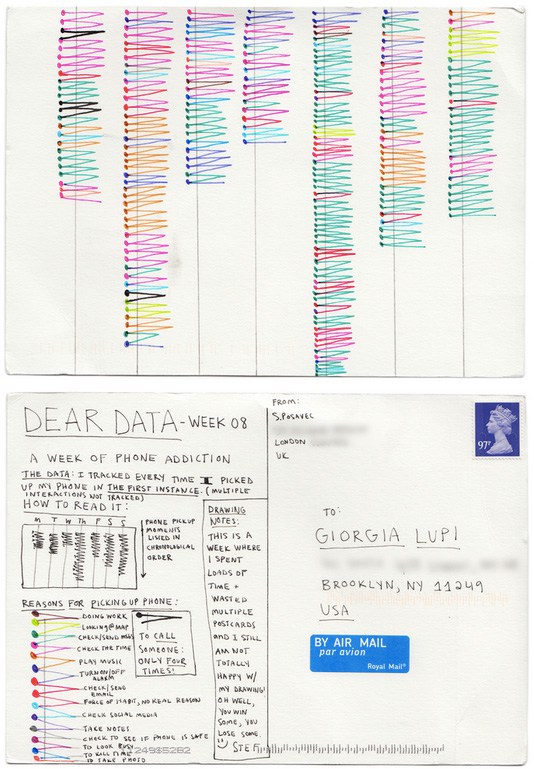 DEAR DATA - WEEK 08
A WEEK OF PHONE ADDICTION
THE DATA: I TRACKED EVERY TIME I PICKED
UP MY PHONE IN THE FIRST INSTANCE. (MULTIPLE
INTERACTIONS NOT TRACKED)
HOW TO READ IT:
M T W TH F S S
PHONE PICKUP
MOMENTS
LISTED IN
CHRONOLOGICAL
ORDER
REASONS FOR PICKING UP PHONE:
DOING WORK
LOOKING @ MAP
CHECK/SEND MSG
CHECK THE TIME
PLAY MUSIC
TURN ON/OFF
ALARM
CHECK/SEND
EMAIL
FORCE OF HABIT, NO REAL REASON
CHECK SOCIAL MEDIA
TAKE NOTES
CHECK TO SEE IF PHONE IS SAFE
TO LOOK BUSY
TO KILL TIME
TO TAKE PHOTO
TO CALL
SOMEONE:
ONLY FOUR
TIMES!
DRAWING
NOTES:
THIS IS A
WEEK WHERE
I SPENT
LOADS OF
TIME +
WASTED
MULTIPLE
POSTCARDS
AND I STILL
AM NOT
TOTALLY
HAPPY W/
MY DRAWING!
OH WELL,
YOU WIN
SOME, YOU
LOSE SOME.
STEF
FROM:
S. POSAVEC
LONDON
UK
97P
TO:
GIORGIA LUPI
BROOKLYN, NY 11249
USA
BY AIR MAIL
par avion
Royal Mail®